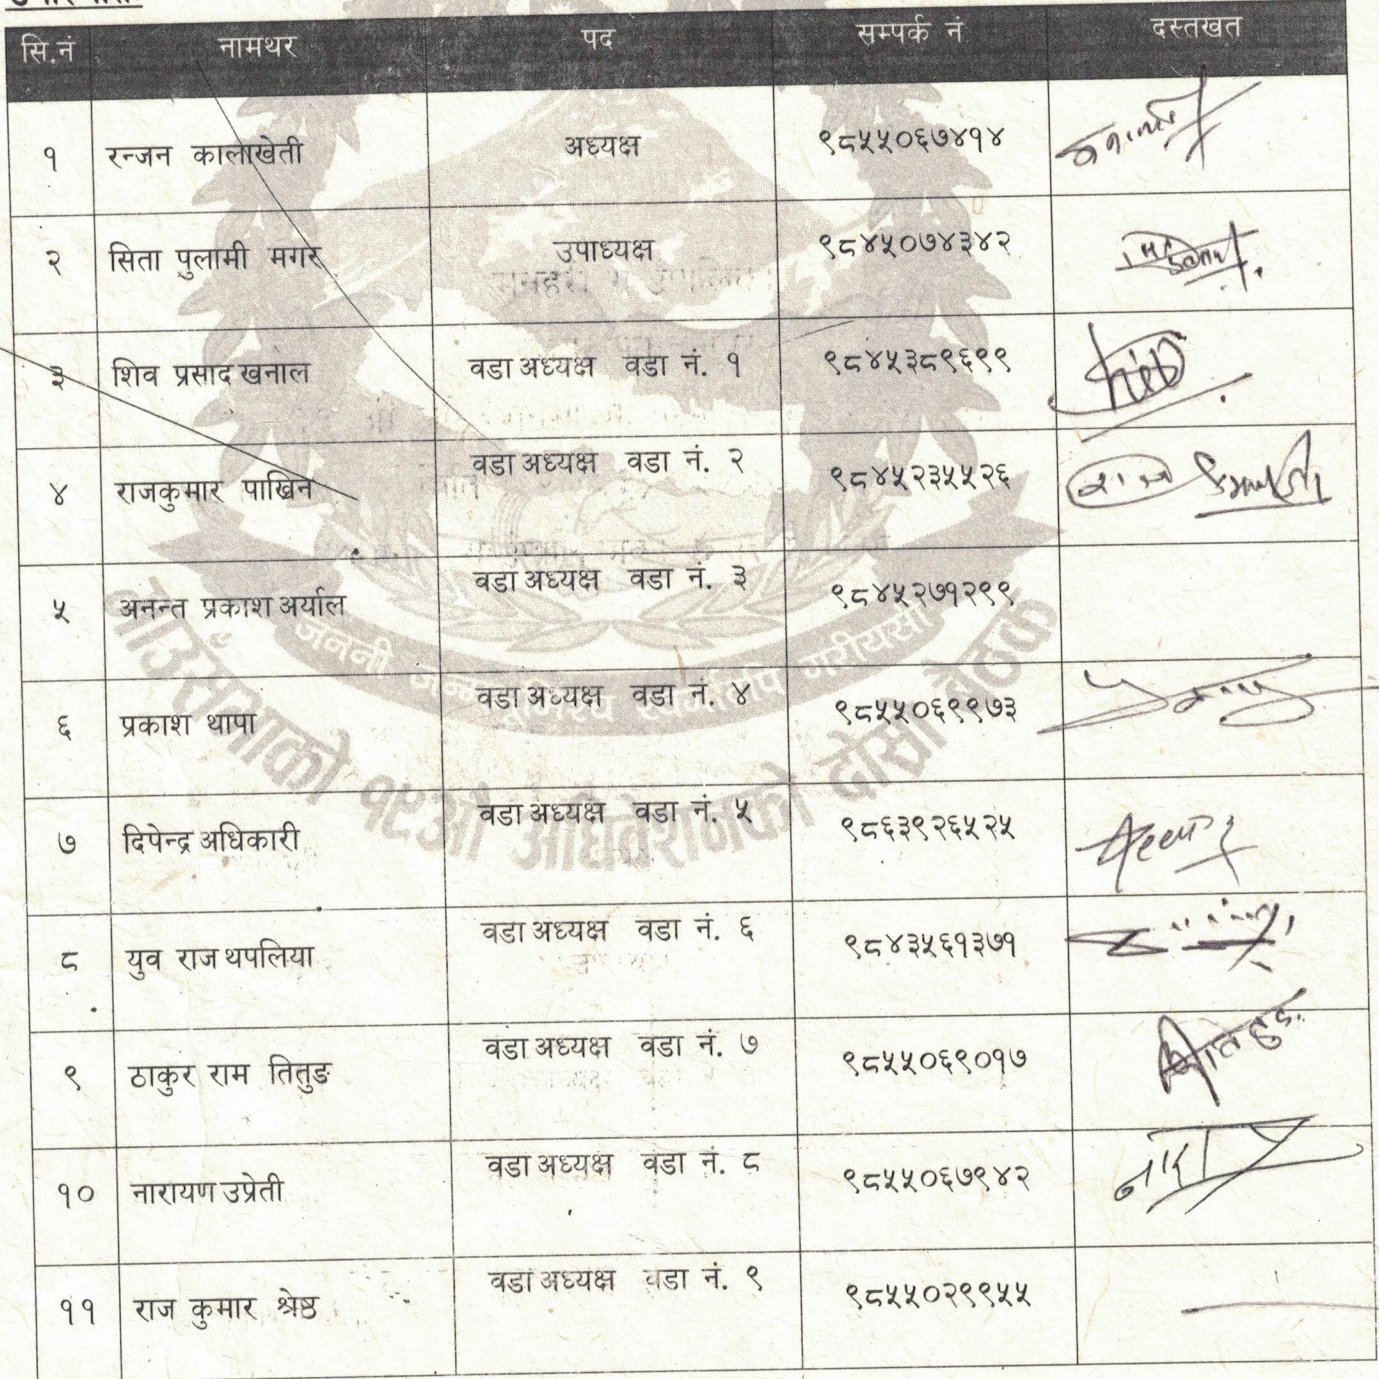 सि.नं नामथर पद सम्पर्क नं दस्तखत
१ रन्जन कालाखेती अध्यक्ष ९८५५०६७४१४
२ सिता पुलामी मगर उपाध्यक्ष ९८४५०७४३४२
३ शिव प्रसाद खनाल वडा अध्यक्ष वडा नं. १ ९८४५३८९६९९
४ राजकुमार पाख्रिन वडा अध्यक्ष वडा नं. २ ९८४५२३५५२६
५ अनन्त प्रकाश अर्याल वडा अध्यक्ष वडा नं. ३ ९८४५२७१२९९
६ प्रकाश थापा वडा अध्यक्ष वडा नं. ४ ९८५५०६९९७३
७ दिपेन्द्र अधिकारी वडा अध्यक्ष वडा नं. ५ ९८६३९२६५२५
८ युव राज थपलिया वडा अध्यक्ष वडा नं. ६ ९८४३५६१३७१
९ ठाकुर राम तितुङ वडा अध्यक्ष वडा नं. ७ ९८५५०६९०१७
१० नारायण उप्रेती वडा अध्यक्ष वडा नं. ८ ९८५५०६७९४२
११ राज कुमार श्रेष्ठ वडा अध्यक्ष वडा नं. ९ ९८५५०२९९५५
जननी जन्मभूमिश्च स्वर्गादपि गरीयसी
गाउँसभाको १५औ अधिवेशनको दोस्रो बैठक